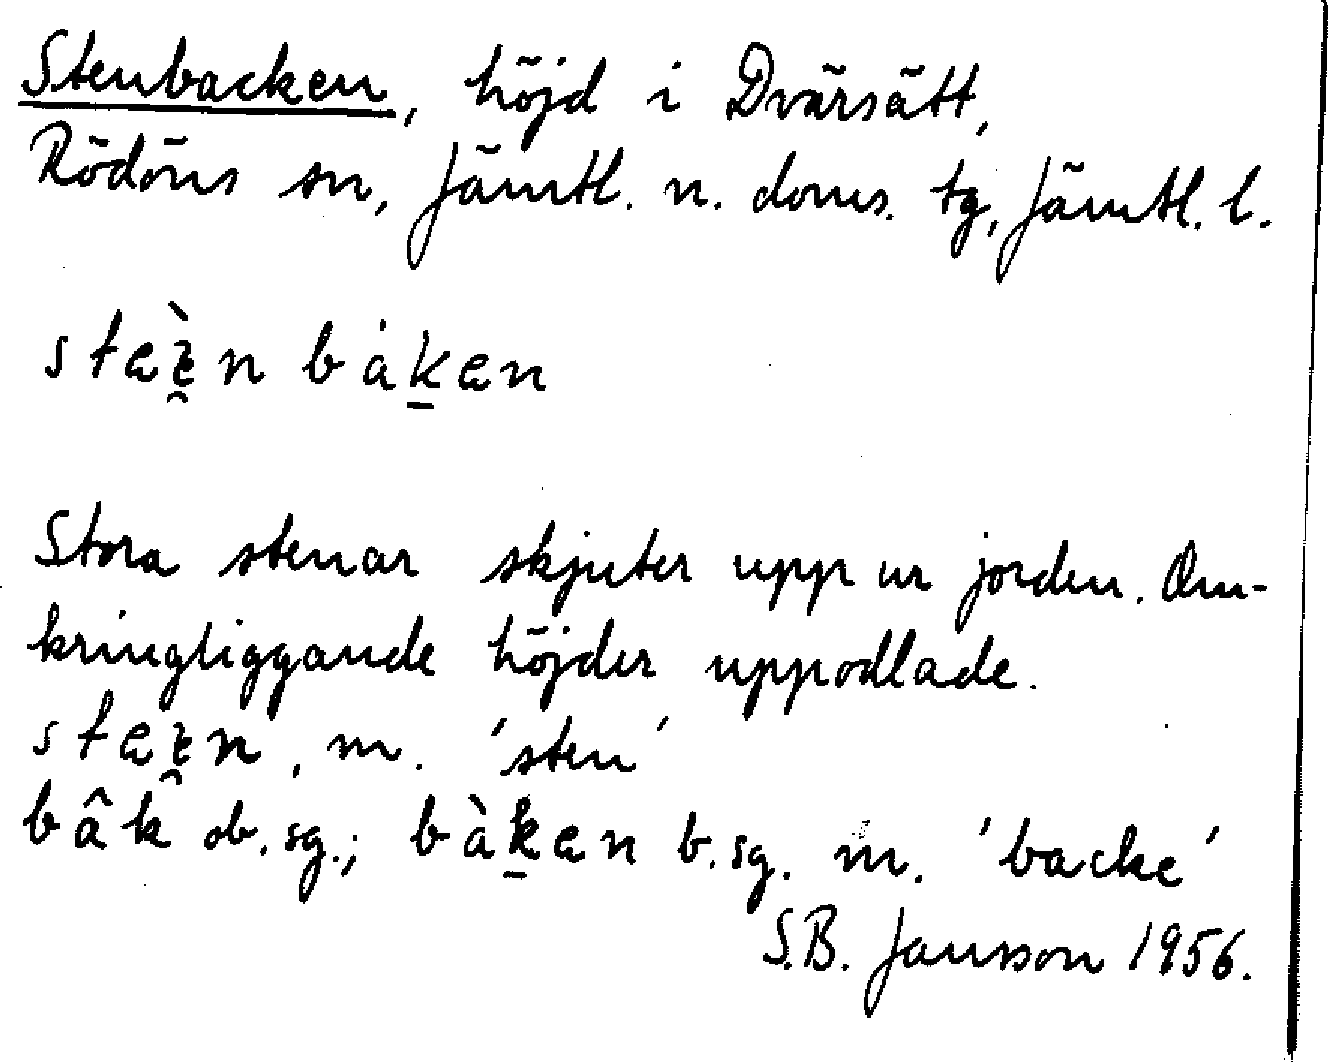 Stenbacken, höjd i Dvärsätt,
Rödöns sn, Jämtl. n. doms. tg, Jämtl. l.
staɛ̯̀n bȧk̲en
Stora stenar skjuter upp ur jorden. Om-
kringliggande höjder uppodlade.
staɛ̯n, m. 'sten'
bâk ob. sg.; bàk̲en b. sg. m. 'backe'
S.B. Jansson 1956.